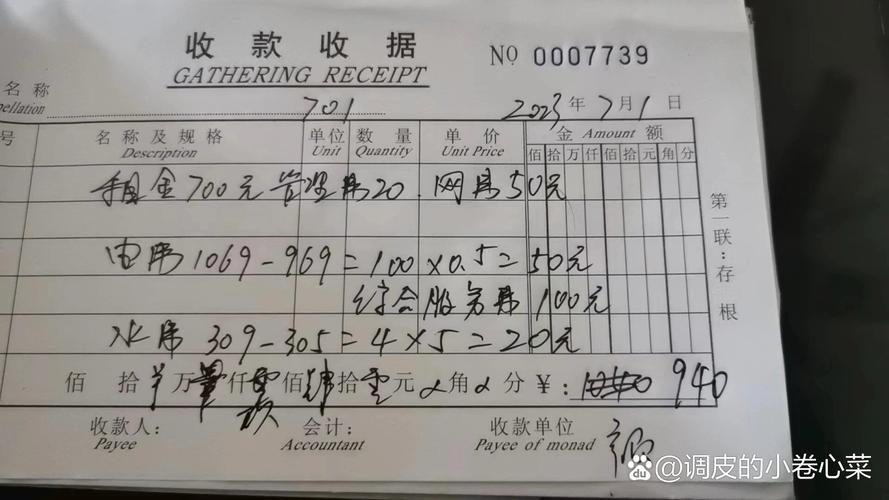 收款收据 NO 0007739
GATHERING RECEIPT
名称 701 2023年7月1日
ellation
号 名称及规格 单位 数量 单价 金 Amount 额
Description Unit Quantity Unit Price 佰拾万仟佰拾元角分
租金700元 管理费20.网费50元
电费1069-969=100×0.5=50元
综合服务费100元
水费 309-305=4×5=20元
佰 拾 万 仟 佰 肆拾 零元 角 分 ¥: 940
收款人: 会计: 收款单位
Payee Accountant Payee of monad
第一联:存根
du @调皮的小卷心菜